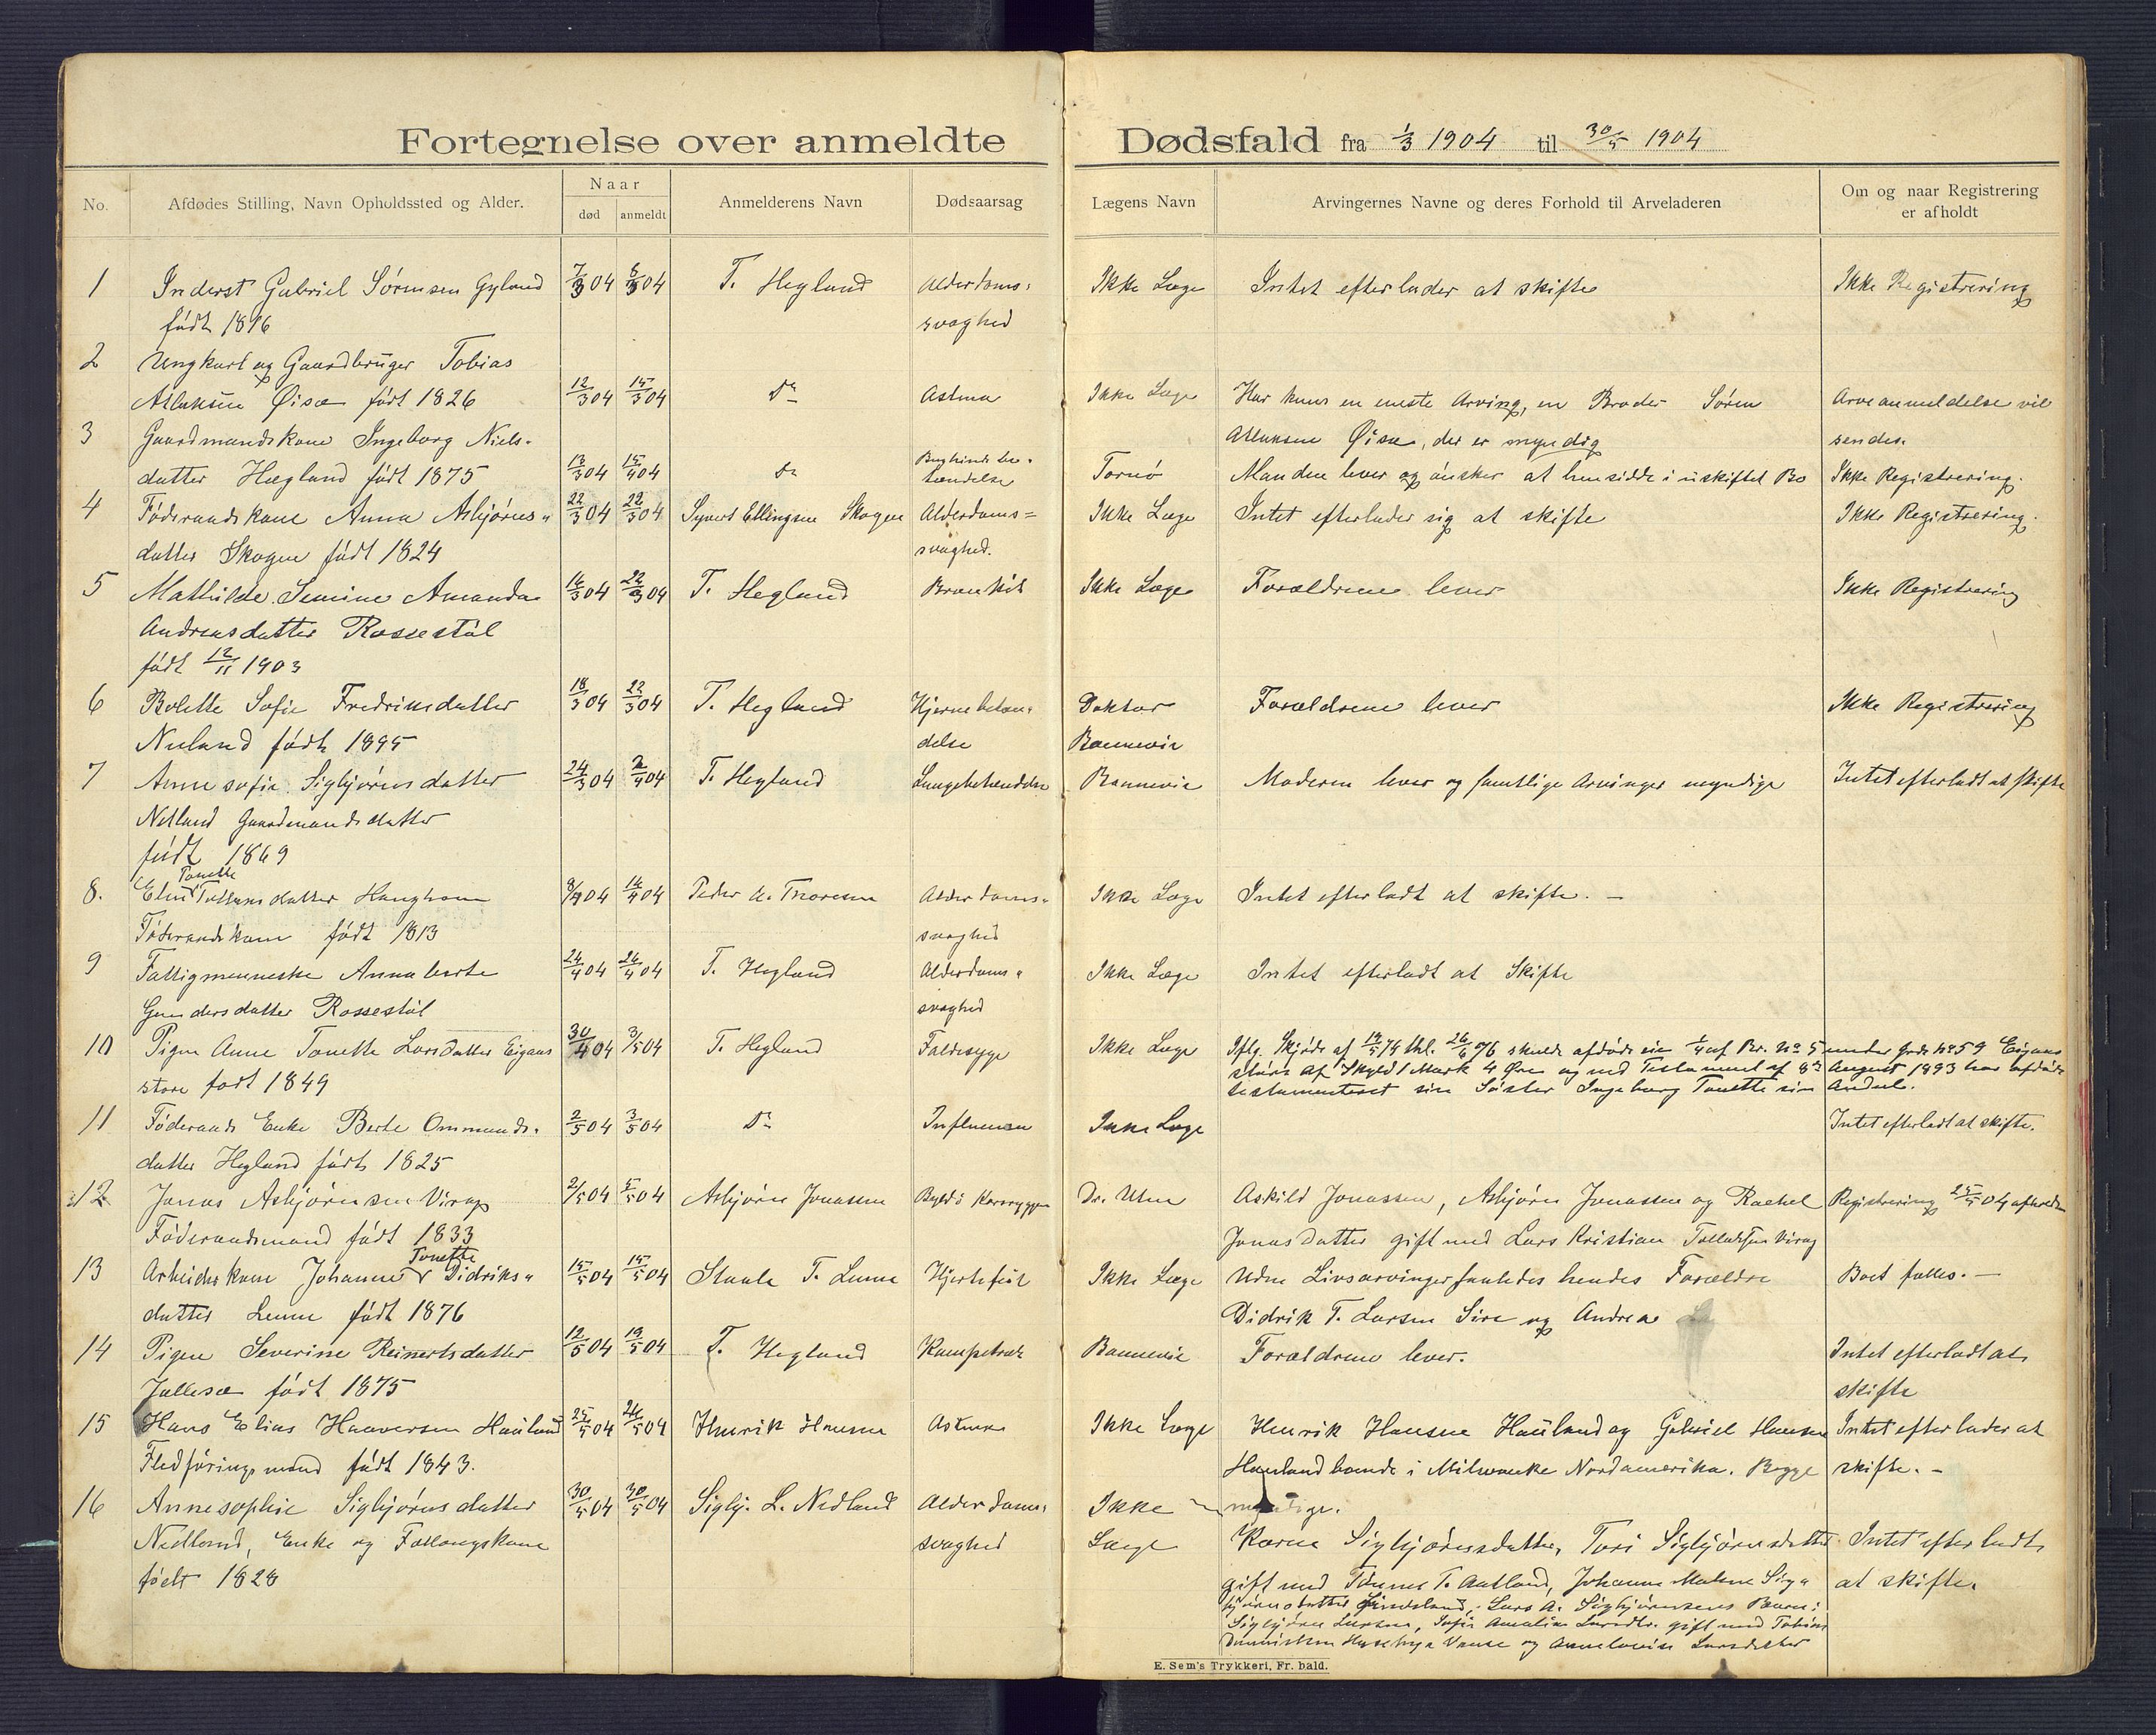 Fortegnelse over anmeldte Dødsfald fra 1/3 1904 til 30/5 1904
No. Afdødes Stilling, Navn Opholdssted og Alder. Naar død anmeldt Anmelderens Navn Dødsaarsag Lægens Navn Arvingernes Navne og deres Forhold til Arveladeren Om og naar Registrering er afholdt
1 Inderst Gabriel Sørensen Gyland 7/3 04 8/3 04 T. Hegland Alderdoms- Ikke Læge Intet efterlader at skifte Ikke Registrering
født 1816 svaghed
2 Ungkarl og Gaardbruger Tobias
Atlaksen Øisæ født 1826 12/3 04 15/3 04 Do Astma Ikke Læge Har kuns en eneste Arving, en Broder Søren Arveanmeldelse vil
3 Gaardmandskone Ingeborg Niels- Atlaksen Øisæ, der er myndig sendes.
datter Hægland født 1875 13/3 04 15/4 04 Do Bughindebe-tændelse Tornø Manden lever og ønsker at hensidde i uskiftet Bo Ikke Registrering.
4 Føderaadskone Anna Asbjørns- 22/3 04 22/3 04 Syvert Ellingsen Skogen Alderdoms- Ikke Læge Intet efterlader sig at skifte Ikke Registrering.
datter Skogen født 1824 svaghed.
5 Mathilde Semine Amanda 16/3 04 22/3 04 T. Hegland Bronkit Ikke Læge Forældrene lever Ikke Registrering
Andreasdatter Rossestøl
født 12/11 1903
6 Bolette Sofie Fredriksdatter 18/3 04 22/3 04 T. Hegland Hjernebetæn- Doktor Forældrene lever Ikke Registrering
Nuland født 1895 delse Bonnevie
7 Anne sofie Sigbjørnsdatter 24/3 04 2/4 04 T. Hegland Lungebetændelse Bonnevie Moderen lever og samtlige Arvinger myndige Intet efterladt at skifte
Netland Gaardmandsdatter
født 1869
8. Elen Tonette Tollaksdatter Haughom 9/4 04 14/4 04 Peder A. Thoresen Alderdoms- Ikke Læge Intet efterladt at skifte. —
Føderaadskone født 1813 svaghed
9 Fattigmenneske Anna berte 24/4 04 26/4 04 T. Hegland Alderdoms- Ikke Læge Intet efterladt at Skifte
Gundersdatter Rossestøl svaghed
10 Pigen Anne Tonette Larsdatter Eigans 30/4 04 3/5 04 T. Hegland Faldesyge Ikke Læge Iflg. Skjøde af 19/5 74 thl. 26/6 76 skulde afdøde eie 1/4 af Br. No 5 under Grds No 59 Eigans
store født 1849 støre af Skyld 1 Mark 4 Øre og ved Testament af 8de August 1893 har afdøde
testamenteret sin Søster Ingeborg Tonette sin Andel.
11 Føderaads Enke Berte Ommunds- 2/5 04 3/5 04 Do Influensa Ikke Læge Intet efterladt at skifte.
datter Hegland født 1825
12 Jonas Asbjørnsen Virag 2/5 04 5/5 04 Asbjørn Jonassen Byld i Korsryggen Dr. Askild Jonassen, Asbjørn Jonassen og Rachel Registrering 25/5 04 afholdt
Føderaadsmand født 1833 Jonasdatter gift med Lars Kristian Tolladsen Virag
13 Arbeiderkone Johanne Tonette Didriks- 15/5 04 15/5 04 Staale T. Lunne Hjertefeil Ikke Læge Uden Livsarvinger saaledes hendes Forældre Boet fælles. —
datter Lenne født 1876 Didrik T. Larsen Sire og Andrea
14 Pigen Severine Reinertsdatter 12/5 04 19/5 04 T. Hegland Bonnevie Forældrene lever. Intet efterladt at
Jallesæ født 1875 skifte
15 Hans Elias Haaversen Hauland 25/5 04 26/5 04 Henrik Hansen Astma Ikke Læge Henrik Hansen Hauland og Gabriel Hansen Intet efterlader at
Fledføringsmand født 1843. Hauland boende i Milwaukee Nordamerika. Begge skifte. —
16 Annesophie Sigbjørnsdatter 30/5 04 30/5 04 Sigbj. L. Nedland Alderdoms- Ikke myndige.
Nedland, Enke og Follaugskone svaghed Læge Karen Sigbjørnsdatter, Tori Sigbjørnsdatter Intet efterladt
født 1828 gift med Tønnes T. Aatland, Johanne Malene Sig- at skifte.
bjørnsdatter Lindeland, Lars A. Sigbjørnsens Børn:
Sigbjørn Larsen, Sofie Amalie Larsdtr. gift med Tobias
Husebye Vanse og Annelovise Larsdatter
E. Sem's Trykkeri, Fr. hald.